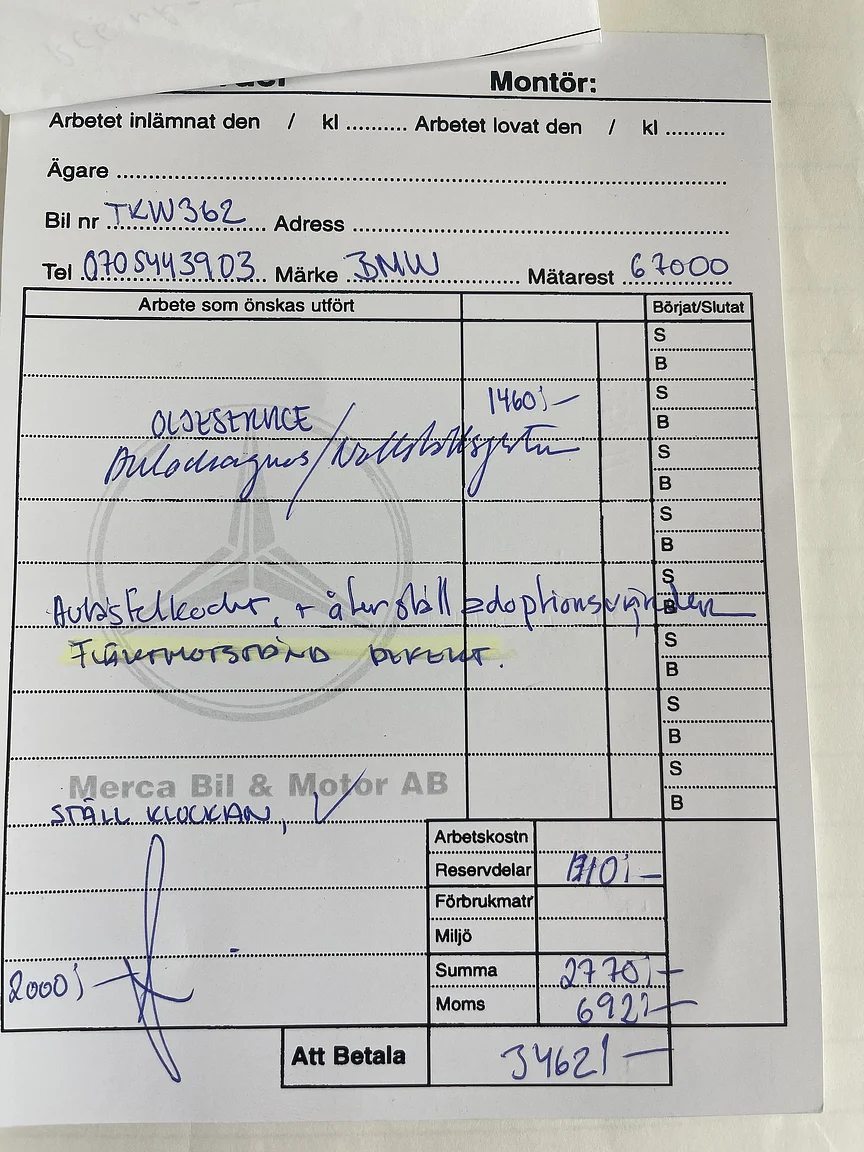 Montör:
Arbetet inlämnat den / kl .......... Arbetet lovat den / kl ..........
Ägare
Bil nr TKW362 Adress
Tel 0705443903 Märke BMW Mätarest 67000
Arbete som önskas utfört Börjat/Slutat
S
B
S
1460:-
OLJESERVICE
B
S
Autodiagnos/
B
S
B
S
felkoder, + återställ adoptionsvärden
B
S
FLÄKTMOTSTÅND DEFEKT.
B
S
B
S
Merca Bil & Motor AB
B
STÄLL KLOCKAN,
Arbetskostn
Reservdelar
Förbrukmatr
Miljö
Summa 2770:-
2000:-
Moms 692:-
Att Betala 3462:-